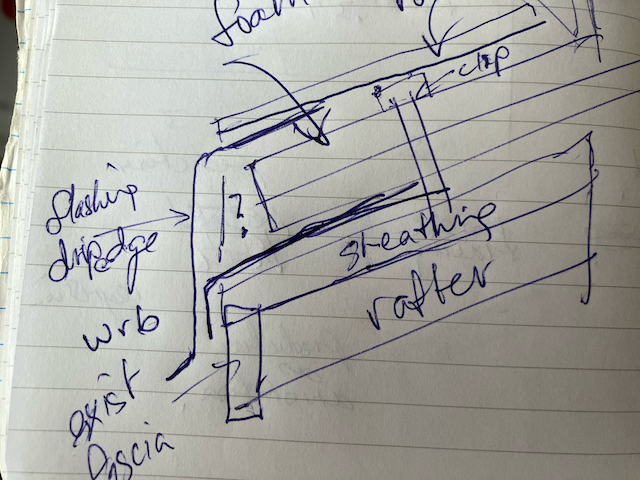 foam
clip
flashing
dripedge
?
sheathing
rafter
wrb
exist
fascia